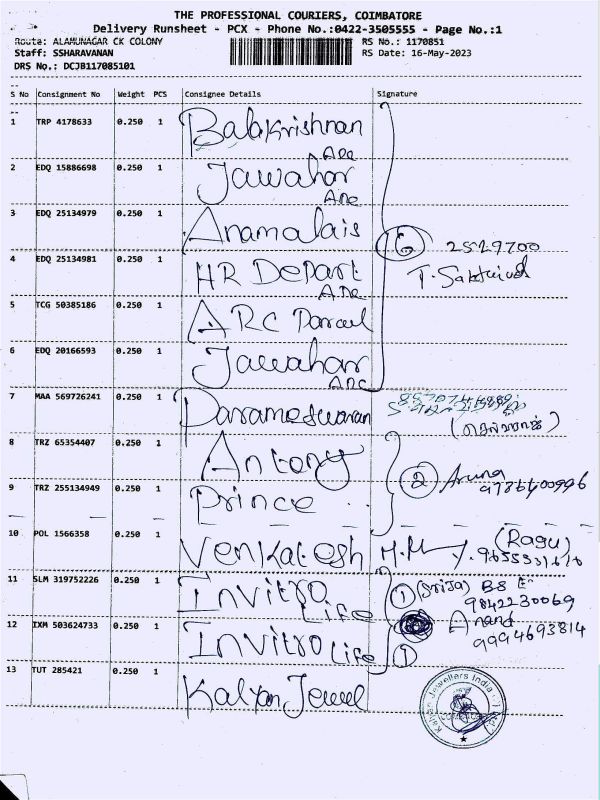 THE PROFESSIONAL COURIERS, COIMBATORE
Delivery Runsheet - PCX - Phone No.:0422-3505555 - Page No.:1
Route: ALAMUNAGAR CK COLONY RS No.: 1170851
Staff: SSHARAVANAN RS Date: 16-May-2023
DRS No.: DCJB117085101
S No Consignment No Weight PCS Consignee Details Signature
1 TRP 4178633 0.250 1 Balakrishnan
2 EDQ 15886698 0.250 1 Jawahar
3 EDQ 25134979 0.250 1 Anamalais
6 2529700
4 EDQ 25134981 0.250 1 HR Depart
5 TCG 50385186 0.250 1 ARC Parcel
6 EDQ 20166593 0.250 1 Jawahar
ARC
7 MAA 569726241 0.250 1 Parameswaran
8 TRZ 65354407 0.250 1 Antony
2 Aruna
9 TRZ 255134949 0.250 1 Prince
10 POL 1566358 0.250 1 Venkatesh (Ragu)
11 SLM 319752226 0.250 1 Invitro Life 1 (Srija) BSE
9842230069
12 IXM 503624733 0.250 1 Invitro Life 1 Anand
9994693814
13 TUT 285421 0.250 1 Kalyan Jewel
Kalyan Jewellers India